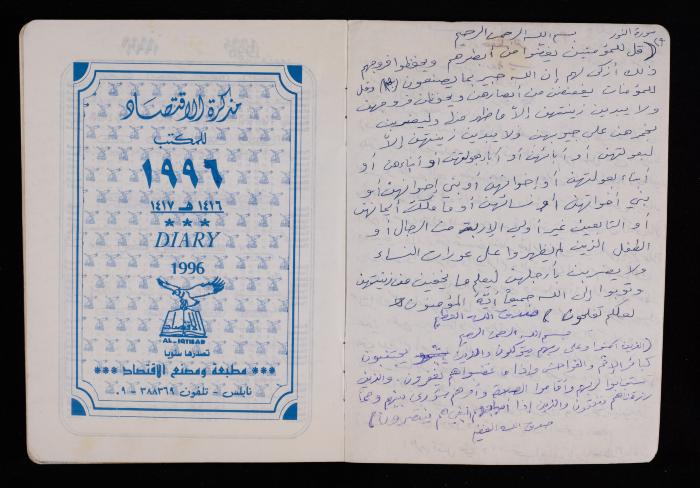 مذكرة الاقتصاد
للمكتب
١٩٩٦
١٤١٦ هـ ١٤١٧
***
DIARY
1996
الاقتصاد
AL-IQTISAD
تصدرها سنويا
*** مطبعة ومصنع الاقتصاد ***
نابلس - تلفون ٣٨٨٣٦٩ - ٠٩
سورة النور بسم الله الرحمن الرحيم
(قل للمؤمنين يغضوا من أبصارهم ويحفظوا فروجهم
ذلك أزكى لهم إن الله خبير بما يصنعون وقل
للمؤمنات يغضضن من أبصارهن ويحفظن فروجهن
ولا يبدين زينتهن إلا ما ظهر منها وليضربن
بخمرهن على جيوبهن ولا يبدين زينتهن إلا
لبعولتهن أو آبائهن أو آباء بعولتهن أو أبناءهن أو
أبناء بعولتهن أو إخوانهن أو بني إخوانهن أو
بني أخواتهن أو نسائهن أو ما ملكت أيمانهن
أو التابعين غير أولي الإربة من الرجال أو
الطفل الذين لم يظهروا على عورات النساء
ولا يضربن بأرجلهن ليعلم ما يخفين من زينتهن
وتوبوا إلى الله جميعاً أيّه المؤمنون
لعلكم تفلحون) صدق الله العظيم
بسم الله الرحمن الرحيم
وعلى ربهم يتوكلون والذين يجتنبون
كبائر الإثم والفواحش وإذا غضبوا هم يغفرون. والذين
استجابوا لربهم وأقاموا الصلاة وأمرهم شورى بينهم ومما
رزقناهم ينفقون والذين إذا أصابهم البغي هم ينتصرون)
صدق الله العظيم